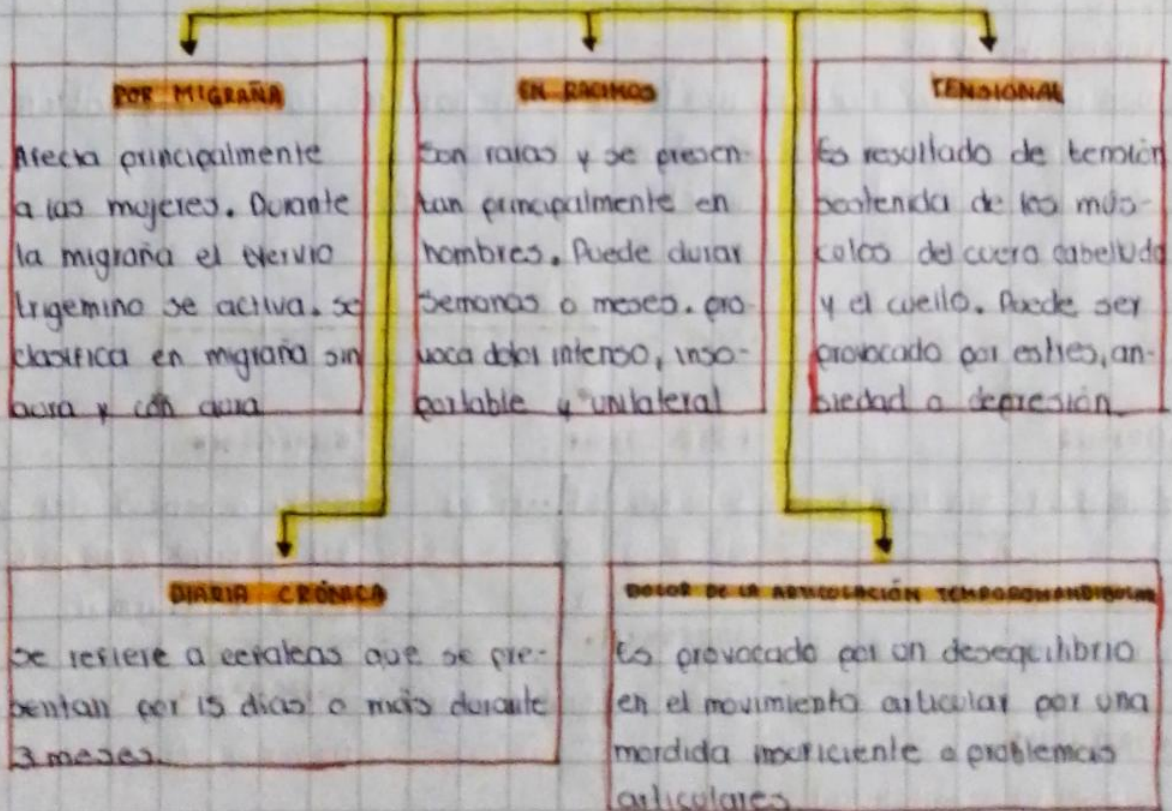 POR MIGRAÑA
Afecta principalmente
a las mujeres. Durante
la migraña el nervio
trigemino se activa. se
clasifica en migraña sin
aura y con aura
EN RACIMOS
Son raras y se presen-
tan principalmente en
hombres. Puede durar
semanas o meses. pro
voca dolor intenso, inso-
portable y unilateral
TENSIONAL
Es resultado de tensión
sostenida de los mús-
culos del cuero cabelludo
y el cuello. Puede ser
provocado por estres, an-
siedad o depresión
DIARIA CRÓNICA
Se refiere a cefaleas que se pre-
sentan por 15 días o más durante
3 meses.
DOLOR DE LA ARTICULACIÓN TEMPOROMANDIBULAR
Es provocado por un desequilibrio
en el movimiento articular por una
mordida insuficiente o problemas
articulares